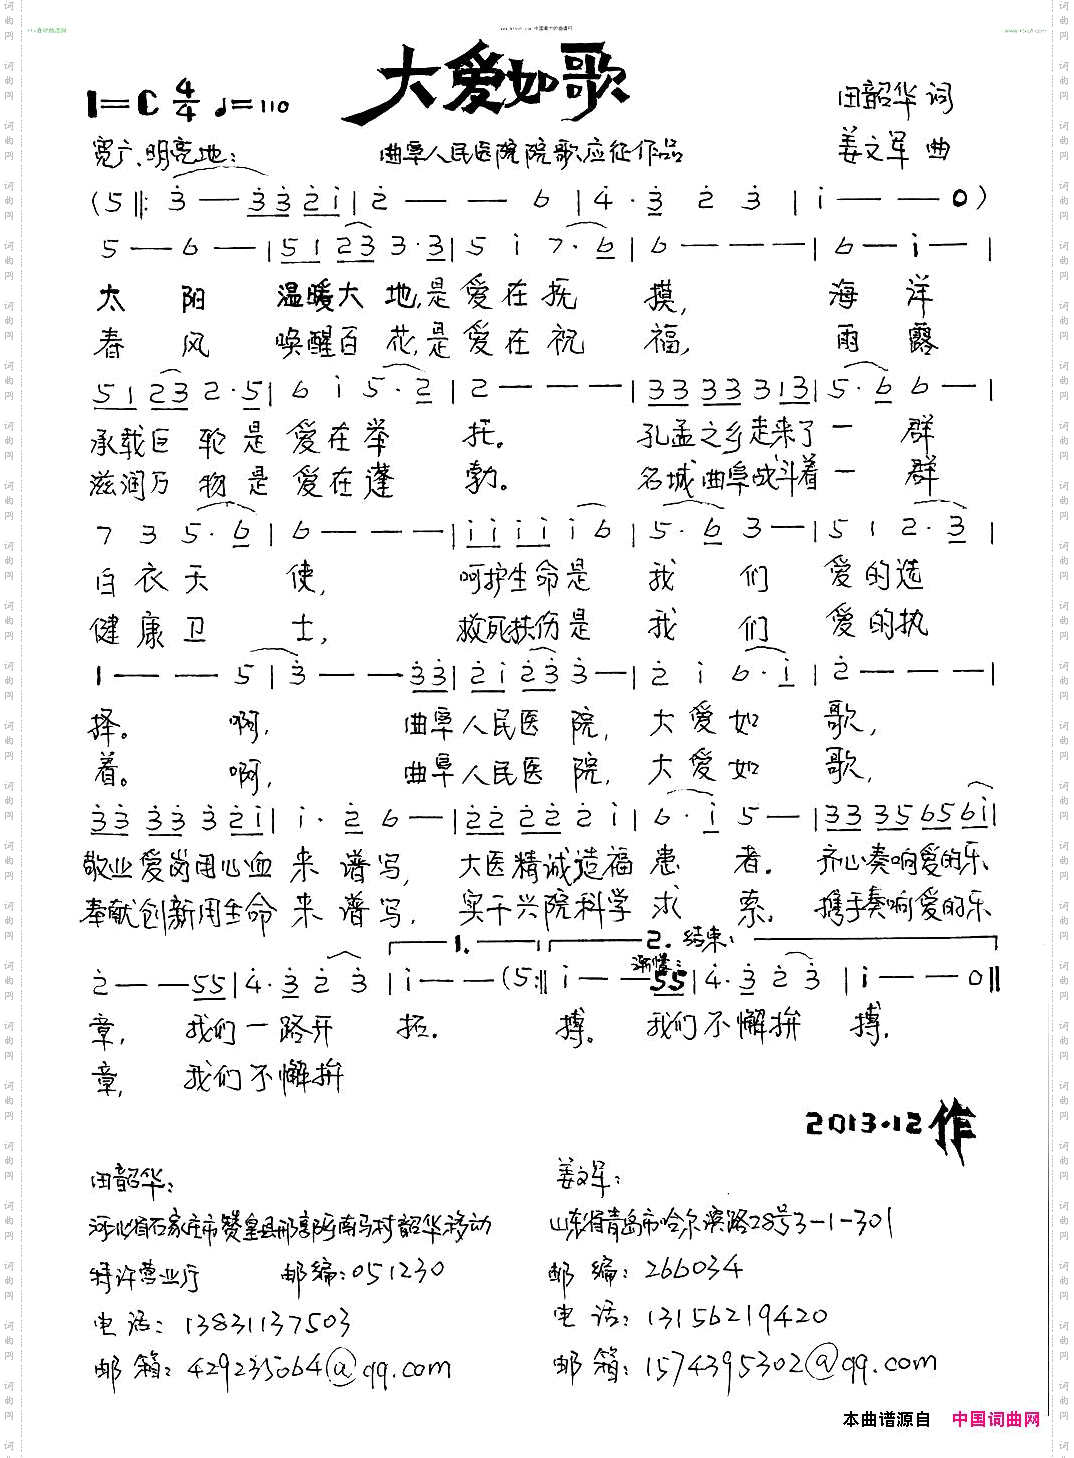 大爱如歌
1=C 4/4 ♩=110
田韶华 词
宽广、明亮地:
曲阜人民医院院歌应征作品
姜文军 曲
(5 ‖: 3̇ — 3̇3̇ 2̇i | 2̇ — — 6 | 4̇· 3̇ 2̇ 3̇ | i — — 0)
5 — 6 — | 51 23 3·3 | 5 i 7·6 | 6 — — — | 6 — i — |
太 阳 温暖大 地,是 爱 在 抚 摸, 海 洋
春 风 唤醒百 花,是 爱 在 祝 福, 雨 露
51 23 2·5 | 6 i 5·2 | 2 — — — | 33 33 3 13 | 5·6 6 — |
承载巨 轮 是 爱 在 举 托。 孔孟之乡走来了 一 群
滋润万 物 是 爱 在 蓬 勃。 名城曲阜战斗着 一 群
7 3 5·6 | 6 — — — | ii ii i 6 | 5·6 3 — | 5 1 2·3 |
白 衣 天 使, 呵护生命是 我 们 爱 的 选
健 康 卫 士, 救死扶伤是 我 们 爱 的 执
1 — — 5 | 3̇ — — 3̇3̇ | 2̇i 2̇3̇ 3̇ — | 2̇ i 6·i | 2̇ — — — |
择。 啊, 曲阜人民医 院, 大 爱 如 歌,
着。 啊, 曲阜人民医 院, 大 爱 如 歌,
3̇3̇ 3̇3̇ 3̇ 2̇i | i·2̇ 6 — | 2̇2̇ 2̇2̇ 2̇ i | 6·i 5 — | 33 35 65 6i |
敬业爱岗用心血 来 谱 写, 大医精诚造福 患 者。 齐心奏响爱的乐
奉献创新用生命 来 谱 写, 实干兴院科学 求 索。 携手奏响爱的乐
1. 2. 结束:
渐慢:
2̇ — — 55 | 4̇·3̇ 2̇ 3̇ | i — — (5 :‖ i — — 55 | 4̇·3̇ 2̇ 3̇ | i — — 0 ‖
章, 我们一路开 拓。 搏。 我们不懈拚 搏.
章, 我们不懈拚
2013.12作
田韶华:
河北省石家庄市赞皇县邢郭乡南马村韶华移动
特许营业厅 邮编:051230
电话:13831137503
邮箱:429235064@qq.com
姜文军:
山东省青岛市哈尔滨路28号3-1-301
邮编:266034
电话:13156219420
邮箱:1574395302@qq.com
本曲谱源自 中国词曲网